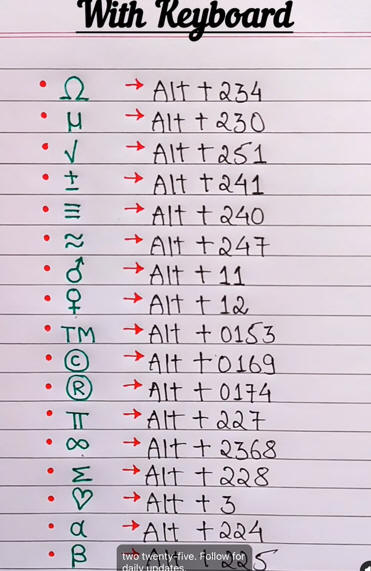 With Keyboard
• Ω → Alt + 234
• μ → Alt + 230
• √ → Alt + 251
• ± → Alt + 241
• ≡ → Alt + 240
• ≈ → Alt + 247
• ♂ → Alt + 11
• ♀ → Alt + 12
• TM → Alt + 0153
• © → Alt + 0169
• ® → Alt + 0174
• π → Alt + 227
• ∞ → Alt + 2368
• Σ → Alt + 228
• ♡ → Alt + 3
• α → Alt + 224
• β → Alt + 225
two twenty-five. Follow for
daily updates